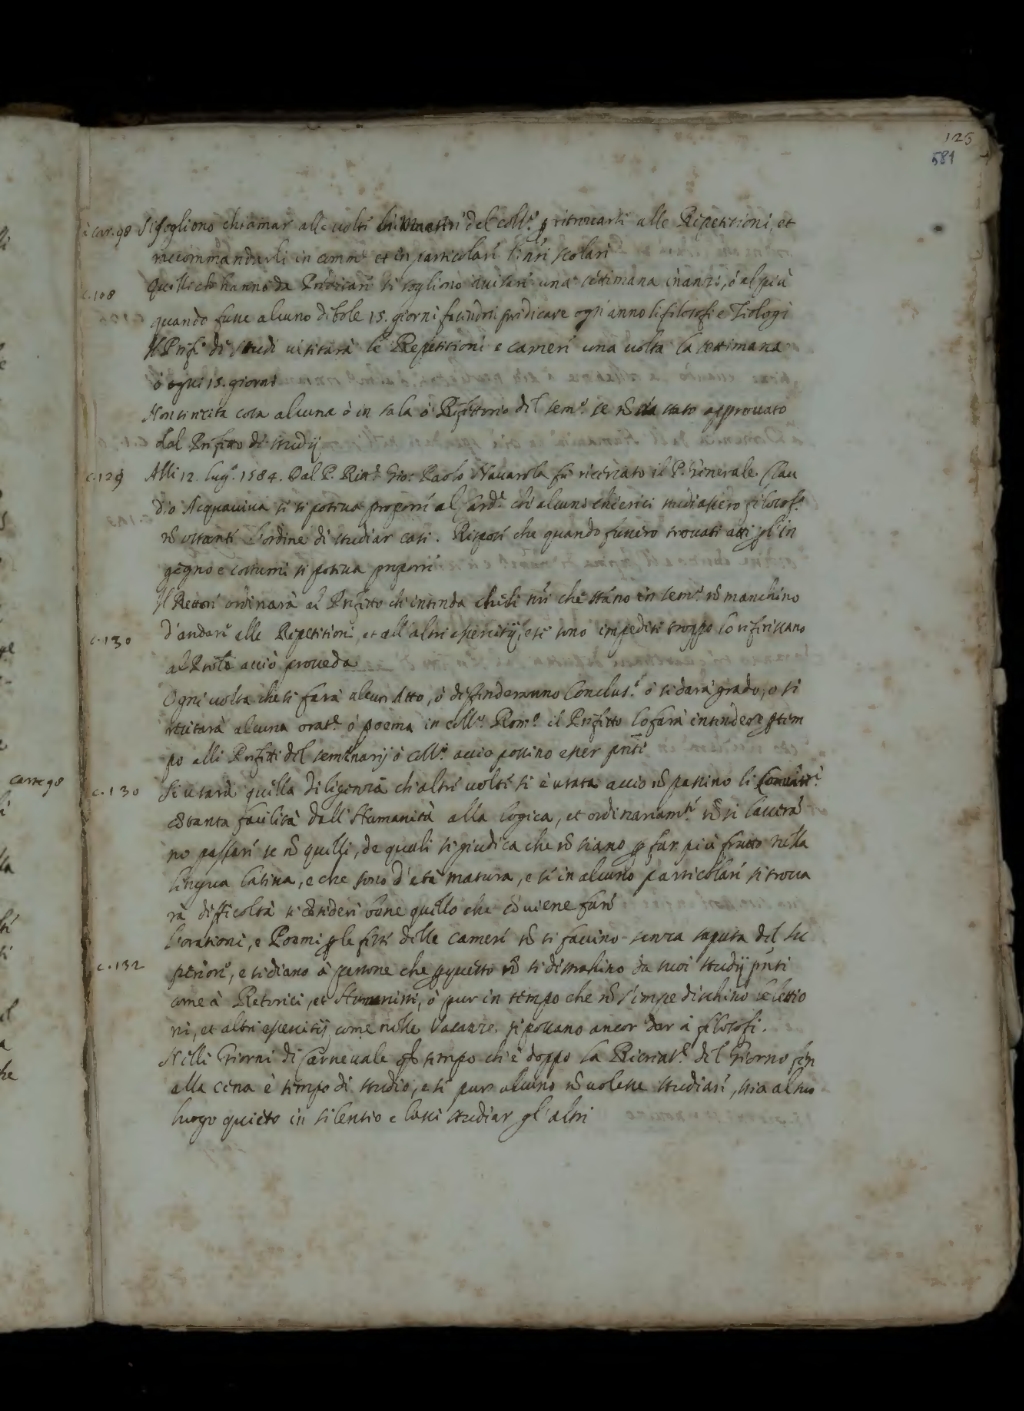 125
581
car. 98 Si sogliono chiamar alle volti li Maestri del coll.º p ritrovarsi alle Repetitioni, et
raccommandarli in comm.e et in particolari li nrī scolari
c. 108 Quelli ch' hanno da si sogliono avisari una settimana inanzi, ò al più
quando fusse alcuno debole 15. giorni facendosi predicare ogni anno li filosofi e Teologi
Il Pref.º di studi visitarà le Repetitioni e cameri una volta la settimana
ò ogni 15. giorni
Non si recita cosa alcuna ò in sala ò Refittorio del sem.º se nō sia stato approvato
dal Prefitto di studij
c. 129 Alli 12. lug.º 1584. Dal P. Rett.e Gio: Paolo Navarola fu ricercato il P. Generale Clau
dio Acquaviva si si poteva proporri al Card.e che alcuni chierici studiassero filosof.a
nō ostanti l'ordine di studiar casi. Risposi che quando fussero trovati atti p l'in
gegno e costumi si poteva proporri
Il Rettori ordinarà al Prefitto ch' intenda ch li nrī che stāno in sem.º nō manchino
c. 130 d'andari alle Repetitioni, et all'altri esercitij, e si sono impediti troppo lo rifiriscano
al acciò proveda
Ogni volta che si farà alcun Atto, ò difinderanno Conclus.i ò si darà grado, o si
recitarà alcuna orat.e ò poema in coll.º Rom.º il Prefitto lo farà intendere p tem
po alli Prefitti del seminarij ò coll.º acciò possino esser pnti
carte 98
c. 130 Si usarà quilla diligenza ch' altri volti si è usata acciò nō passino li
cō tanta facilità dall'Humanità alla logica, et ordinariam.te nō si lascerā
no passari se nō quilli, de quali si giudica che nō siano p far più frutto nilla
lingua latina, e che sono d'età matura, e si in alcuno particolari si trova
rà difficoltà si cōsideri bene quillo che cōviene fare
L'orationi, e Poemi p le festi dille cameri nō si faccino senza saputa del su
c. 132 periori, e si diano à persone che p questo nō si distrahino da suoi studij pnti
come à Retorici, et Humanisti, ò pur in tempo che nō s'impedischino le lettio
ni, et altri esercitij come nille vacanze. si possano ancor dar à filosofi.
Nilli Giorni di Carnevale il tempo ch' è doppo la Ricreat.e del Giorno sin
alla cena è tempo di studio, e si pur alcuno nō volesse studiari, stia al suo
luogo quieto in silentio e lassi studiar gl'altri